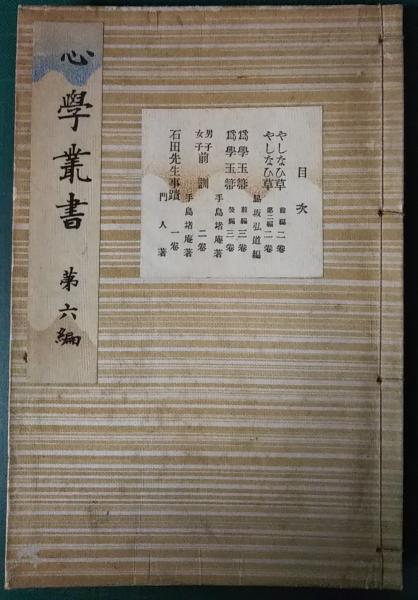 心學叢書 第六編
目次
やしなひ草 前編 二卷
やしなひ草 第二編 二卷
脇坂弘道編
爲學玉箒 前編 三卷
爲學玉箒 後編 三卷
手島堵庵著
男子女子前訓 二卷
手島堵庵著
石田先生事蹟 一卷
門人著